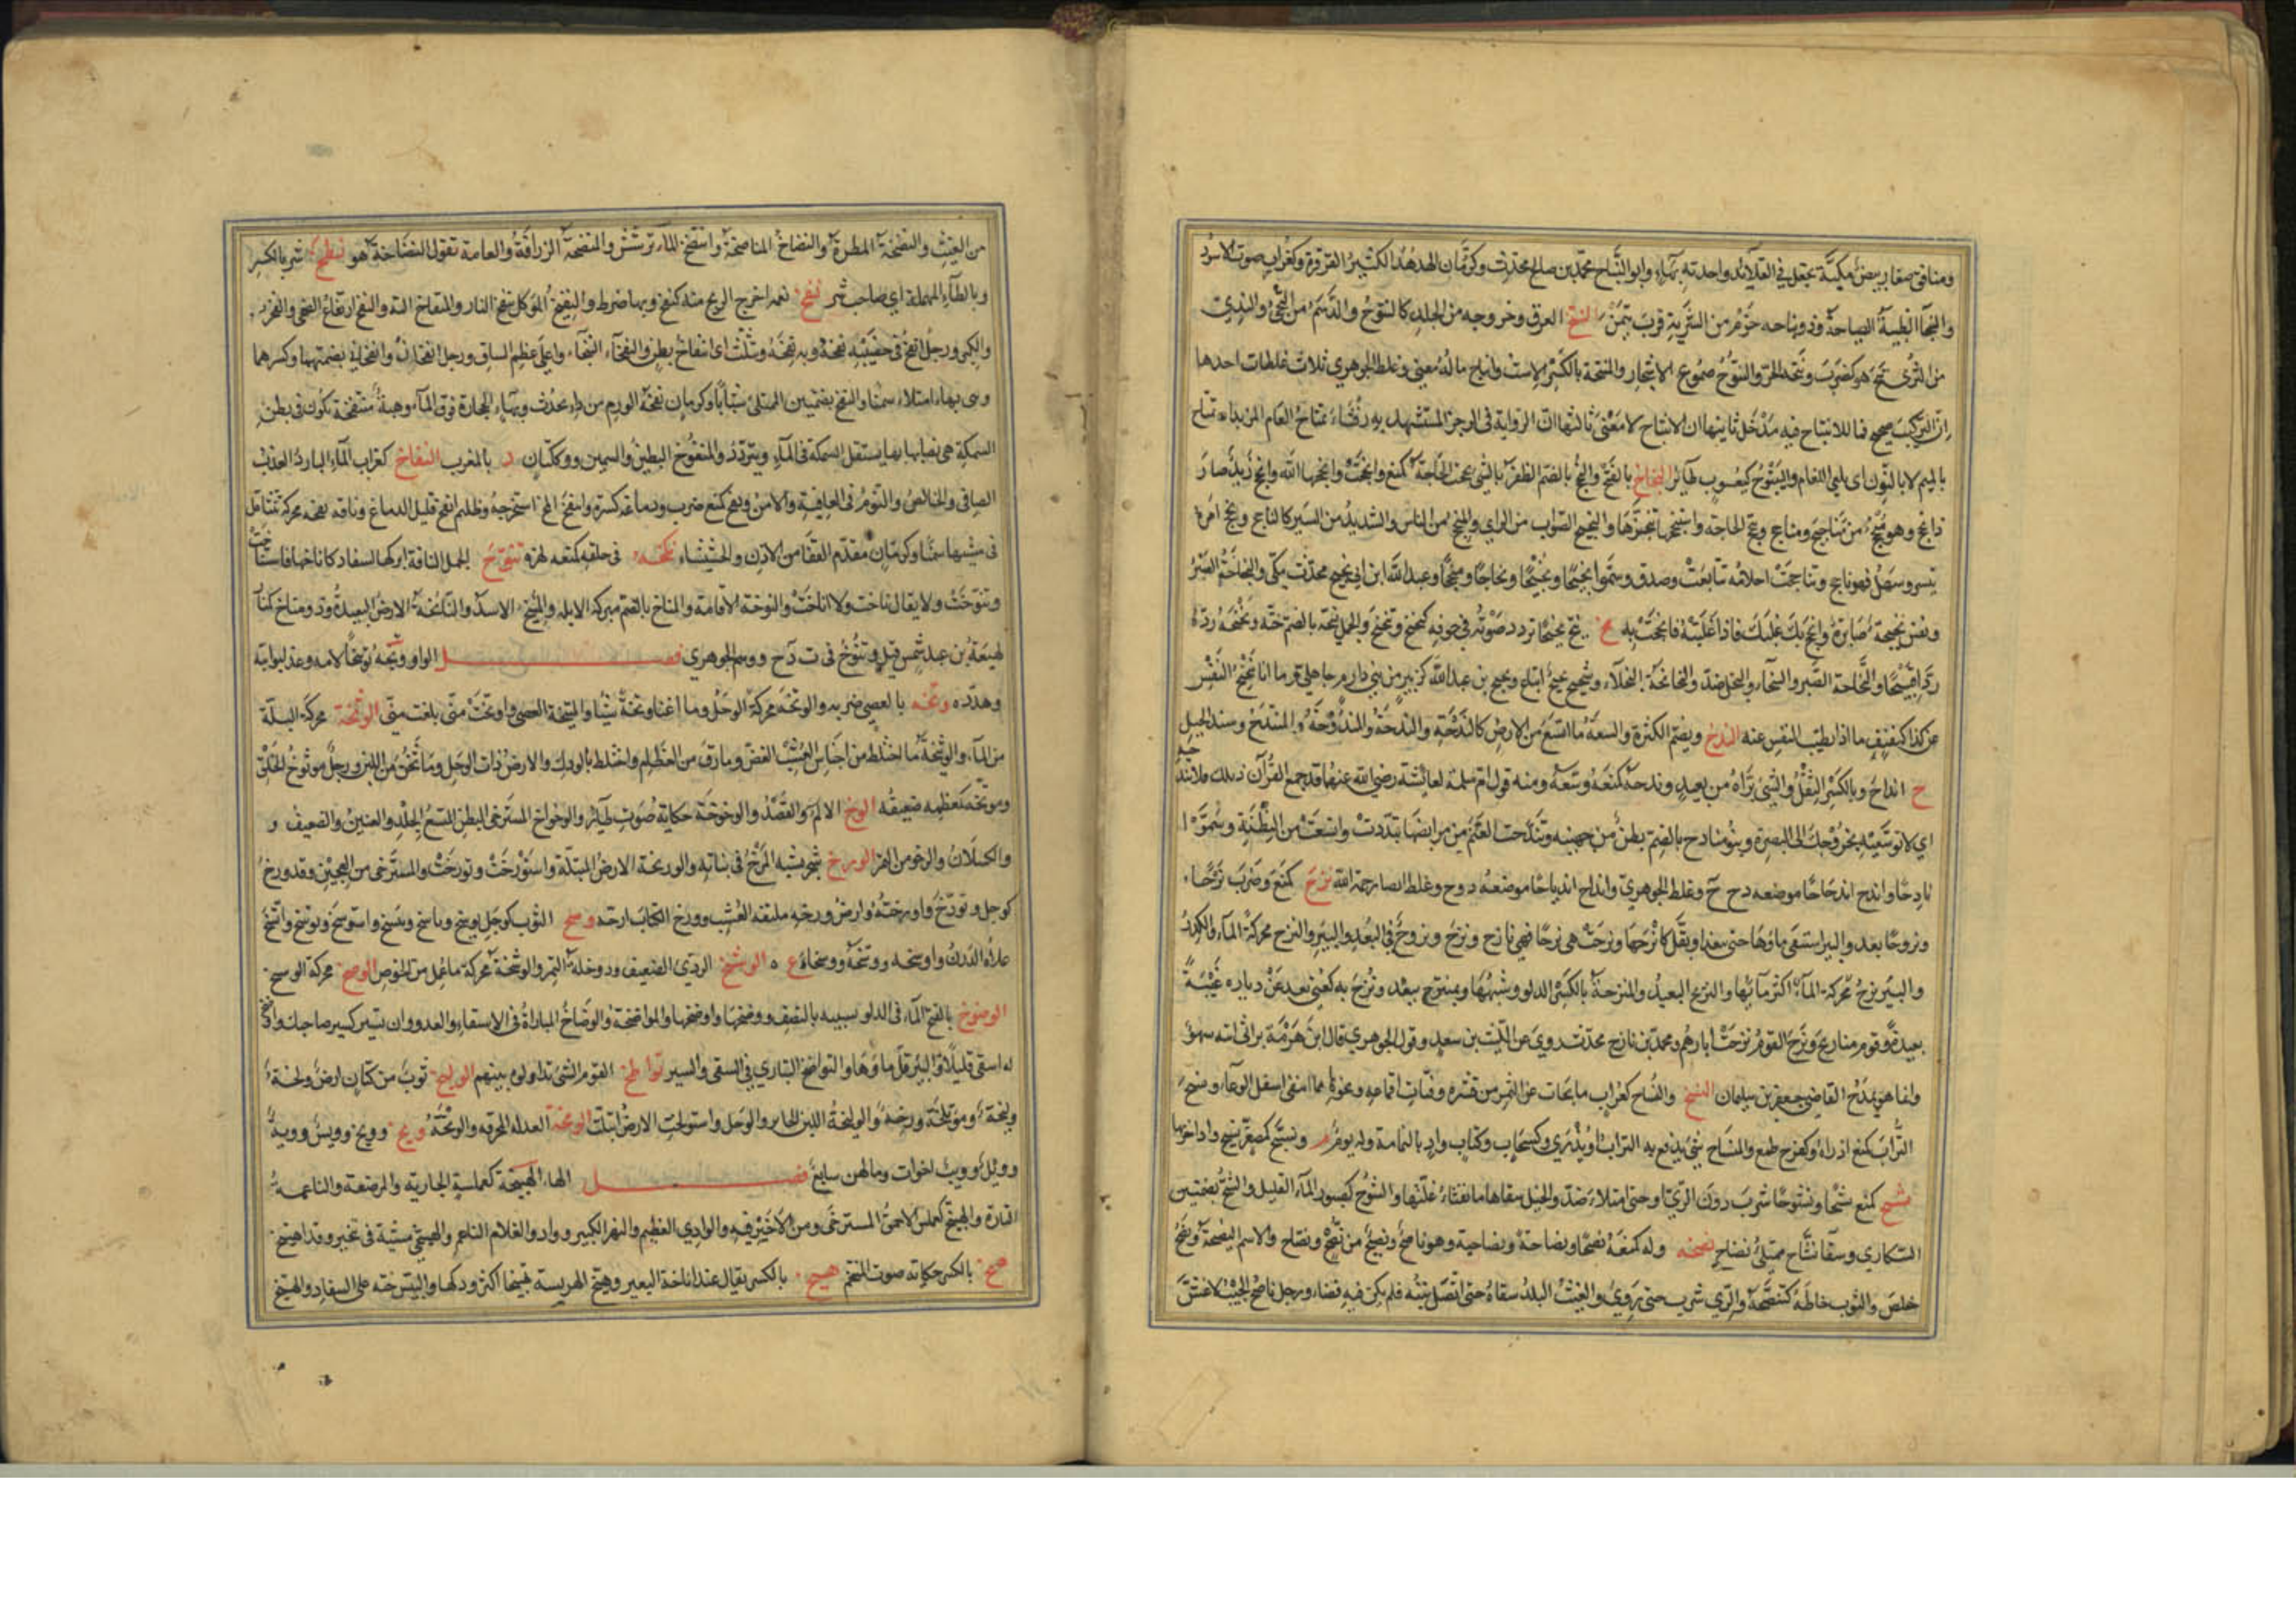 ومناقق صغار بيض مكية تجعل في القلائد واحدته بهاء وابو النباح محمد بن صالح محدث وكرمان الهدهد الكثير القرقرة وكغراب صوت الاسود
والنبحاء الظبية الصياحة وذو نباحه حزم من الشربة قرب تيمن النتح العرق وخروجه من الجلد كالنتوح والدسم من النحي والندى
من الثرى نتح هو كضرب ونتحه الحر والنتوح صموغ الاشجار والمنتحة بالكسر الاست وانباح ماله معنى وغلط الجوهري ثلاث غلطات احدها
ان التركيب صحيح فما للانتياح فيه مدخل ثانيها ان الانتياح لا معنى ثالثها ان الرواية في الرجز المستشهد به رقشاء تمتاح اللغام المزبدا تمتاح
بالميم لا بالنون اى يلقى اللغام واليَنْتوح كيعسوب طائر النجاح بالفتح والنجح بالضم الظفر بالشئ نجحت الحاجة كمنع وانجحت وانجحها الله وانجح زيد صار
ذا نجح وهو منجح من مناجيح ومناجح ونجح الحاجة واستنجحها تنجزها والنجيح الصواب من الراي والمنجح من الناس والشديد من السير كالناجح ونجح امره
تيسر وسهل فهو ناجح وتناجحت احلامه تتابعت وصدق وسموا نجيحا ونجيحا ونجاحا ومنجحا وعبد الله ابن ابي نجيح محدث مكى والنجاحة الصبر
ونفس نجيحة صابرة وانجح بك غلبك فاذا غلبته فانجحت به نح نح ينح نحيحا تردد صوته في جوفه كنحنح وتنحنح والجمل نحه بالضم حثه ونحنحه رده
ردا قبيحا والنحاحة الصبر والسخاء والبخل ضد والنحانحة البخلاء وشحيح نحيح اتباع ونحيح بن عبد الله كزبير من بني دارم جاهلي وما انا بنحنح النفس
عن كذا كنفنف ما انا طيب النفس عنه الندح ويضم الكثرة والسعة ما اتسع من الارض كالندحة والندحة والمندوحة والمنتدح وسند الجبل
ج انداح وبالكسر الثقل والشئ تراه من بعيد وندحه كمنعه وسعه ومنه قول ام سلمة لعائشة رضي الله عنهما قد جمع القرآن ذيلك فلا تندحيه
اي لا توسعيه بخروجك الى البصرة وبنو منادح بالضم بطن من جهينه وتندحت الغنم من مرابضها تبددت واتسعت من البطنة وسموا
نادحا واندح اندحاحا موضعه دح ح وغلط الجوهري وانداح اندياحا موضعه دوح وغلط ايضا رحمه الله نزح كمنع وضرب نزحا
ونزوحا بعد والبئر استقى ماءها حتى ينفد او يقل كانزحها ونزحت هي نزحا فهي نازح ونزح ونزوح في البعد والبئر والنزح محركة الماء الكدر
والبئر نزح محركة الماء اكثر مائها والنزيح البعيد والمنزحة بالكسر الدلو وشبهها وبمنتزح ببعد ونزح به كعنى بعد عن دياره غيبة
بعيدة وقوم منازيح ونزح القوم نزحت ابارهم ومحمد بن نازح محدث روى عن الليث بن سعد وقول الجوهري قال ابن هرمة يرثى ابنه سهو
وانما هو يمدح القاضي جعفر بن سليمان النسح والنساح كغراب ما تحات عن التمر من قشره وفتات اقماعه ونحوها مما انتفى اسفل الوعاء ونسح
التراب كمنع اذراه وكفرح طمع والمنساح شئ يدفع به التراب او يذرى وكسحاب وكتاب واد باليمامة وله يوم م ونسيح كمصغر نسيح واد اخر بها
نشح كمنع نشحا ونشوحا شرب دون الري او حتى امتلاء ضد والخيل سقاها ما يفثاء غلتها والنشوح كصبور الماء القليل والنشح بضمتين
السكارى وسقاء نشاح ممتلئ نضاح نصحه وله كمنعه نصحا ونصاحة ونصاحية وهو ناصح ونصيح من نصح ونصاح والاسم النصيحة ونصح
خلص والثوب خاطه كتنصحه والري شرب حتى روى والغيث البلد سقاه حتى اتصل نبته فلم يكن فيه فضاء ورجل ناصح الجيب لا غش
من الغيث والنضخة المطرة والنضاخ المناضخة وانتضخ الماء ترشش والمنضخة الزراقة والعامة تقول النضاخة هو نطخ شر بالكسر
وبالطاء المهملة اي صاحب شر نفخ بفمه اخرج الريح منه كنفخ وبها ضرط والنفيخ الموكل بنفخ النار والمنفاخ الته والنفخ ارتفاع الضحى والفخر
والكبر ورجل انفخ في خصييه نفخة وبه نفخة ويثلث اى انتفاخ بطن والنفخاء النبخاء واعلى عظم الساق ورجل انفخان وانفخاني بضمتهما وكسرهما
وهى بهاء امتلاء سمنا والنفخ بضمتين الممتلئ شبابا وكرمان نفخة الورم من داء يحدث وبهاء الحجارة فوق الماء وهنة منتفخة تكون في بطن
السمكة هي نصابها بها يستقل السمكة في الماء ويتردد والمنفوخ البطين والسمين ووكنان د بالمغرب النقاخ كغراب الماء البارد العذب
الصافي والخالص والنوم في العافية والامن ونقخ كمنع ضرب ودماغه كسره وانتقخ المخ استخرجه وظليم انقخ قليل الدماغ وناقه نقخه محركة تتثاقل
في مشيها سمنا وكرمان مقدم القفا من الاذن والخششاء نكخه في حلقه كمنعه لهزه تنوخ الجمل الناقة ابركها للسفاد كاناخها فاستناخت
وتنوخت ولا يقال ناخت ولا اناخت والنوخة الاقامة والمناخ بالضم مبرك الابل والمنيخ الاسد والنائخة الارض البعيدة وذو مناخ
لهيعة بن عبد شمس قيل وتنوخ في ت ن خ ووهم الجوهري فصل الواو وبخه توبيخا لامه وعذله وانبه
وهدده وتخه بالعصى ضربه والوتخه محركة الوحل وما اغنا وتخة شيئا والميتخة العصى واوتخت منى بلغت منى الوثخة محركة البلة
من الماء والوثيخة ما اختلط من اجناس العشب الغض وما رق من العظام واختلط بالودك والارض ذات الوحل وما ثخن من اللبن ورجل موثوخ الخلق
وموثخه كمعظمه ضعيفه الوخ الالم والقصد والوخوخة حكاية صوت طائر والوخواخ المسترخي البطن المتسع الجلد والعنين والضعيف و
والكسلان والرخو من التمر الورخ شجر يشبه المرخ في نباته والوريخة الارض المبتلة واستورخت وتورخت والمسترخى من العجين وقد ورخ
كوجل وتورخ واورخته وارض ورخه ملتفه العشب وورخ الكتاب ارخه وسخ الثوب كوجل يوسخ وياسخ وييسخ واستوسخ وتوسخ واتسخ
علاه الدرن واوسخه ووسخه ووسخاء ع ه الوشخ الردئ الضعيف ودوخلة التمر والوشخة محركة ما عمل من الخوص الوصخ محركة الوسخ
الوضوخ بالفتح الماء في الدلو شبيه بالنصف ووضخها واوضخها والمواضخة والوضاخ المباراة في الاستقاء والعدو وان تسير كسير صاحبك واوضخ
له استقى قليلا والبئر قل ماؤها والتواضخ التبارى في السقى والسير تواطخ القوم الشئ تداولوه بينهم الوليخ ثوب من كتان ارض ولخة
وليخة وموتلخة ورخة والوليخة اللبن الخاثر والوحل واستولخت الارض ابتلت الومخة العذلة المحرقه والوبخة ويخ وويح وويس وويه
وويل وويب اخوات ومالهن سابع فصل الهاء الهبيخة كعملسة الجارية والمرضعة والناعمة
التارة والهبيخ كعملس الاحمق المسترخى ومن لا خير فيه والوادي العظيم والنهر الكبير وواد والغلام الناعم والهبيخى مشية في تبختر وقد اهبيخ
هخ بالكسر حكاية صوت المتنخم هيخ بالكسر يقال عند اناخة البعير وهيخ الهريسة تهييخا اكثر ودكها والتيس حثه على السفاد والهيخ